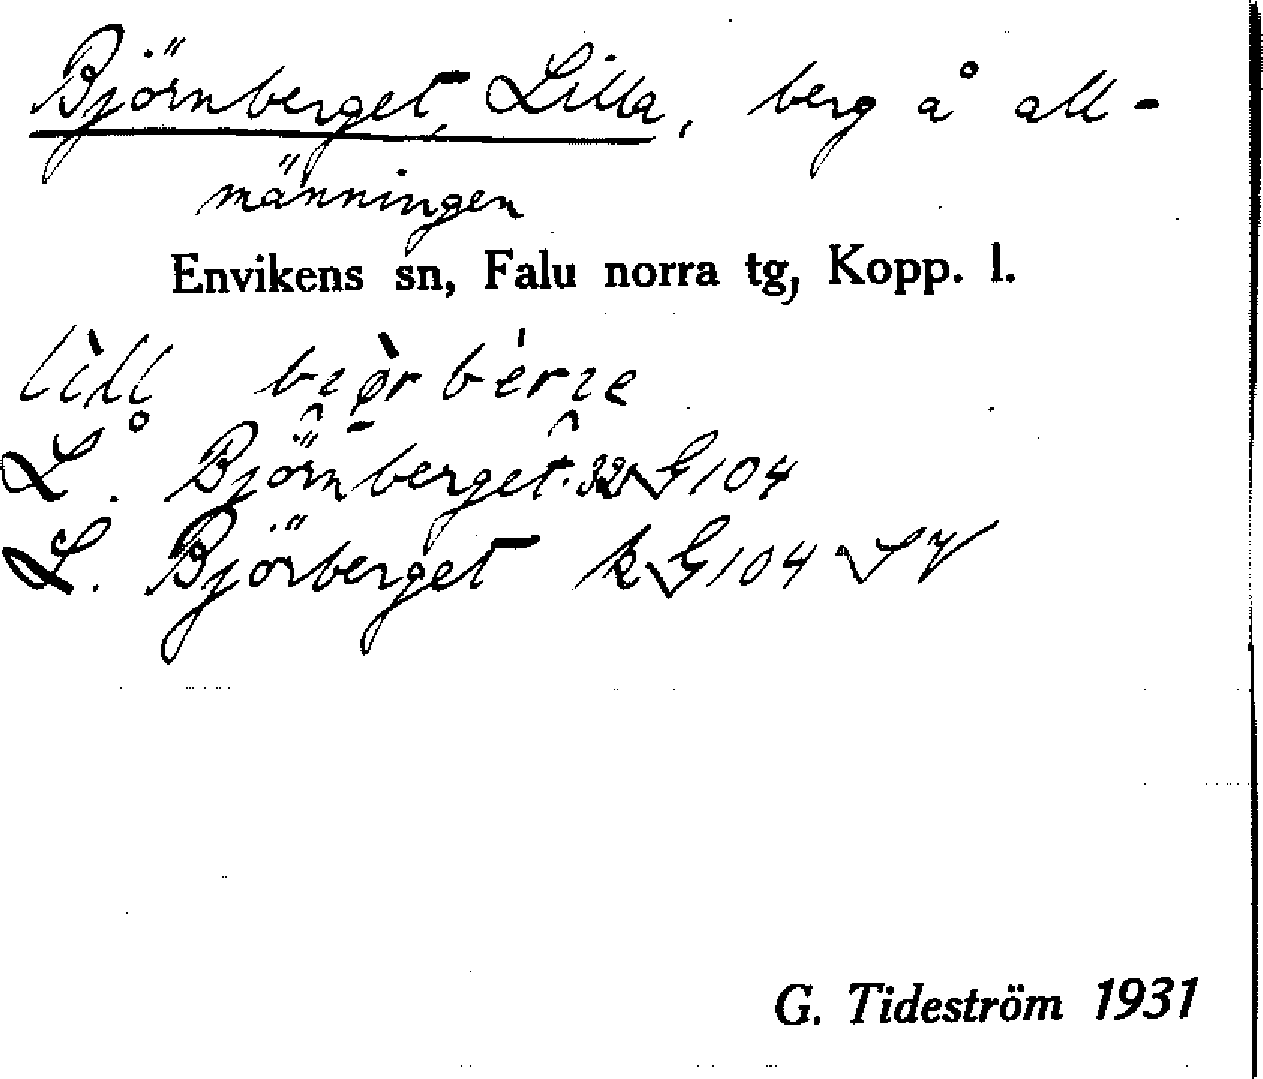 Björnberget, Lilla, berg å all-
männingen
Envikens sn, Falu norra tg, Kopp. l.
L. Björnberget G 104
L. Björberget k G 104 SV
G. Tideström 1931